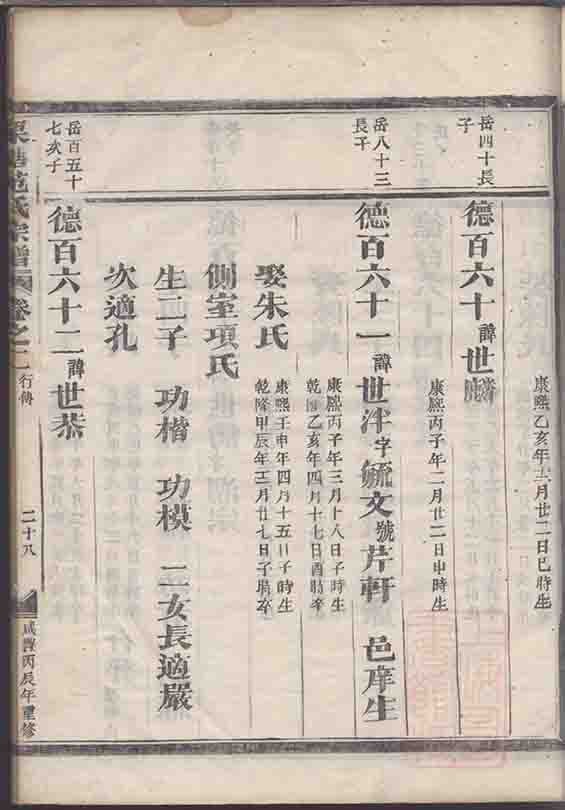 康熙乙亥年三月廿二日巳時生
岳四十長
子
德百六十諱世麟
康熙丙子年二月廿二日申時生
岳八十三
長子
德百六十一諱世泮字毓文號芹軒 邑庠生
康熙丙子年三月十八日子時生
乾隆乙亥年四月十七日酉時卒
娶朱氏
康熙壬申年四月十五日子時生
乾隆甲辰年三月廿七日子時卒
側室項氏
生二子 功楷 功模 二女長適嚴
次適孔
岳百五十
七次子
德百六十二諱世恭
范氏宗譜 卷之二
行傳
二十八
咸豐丙辰年重修